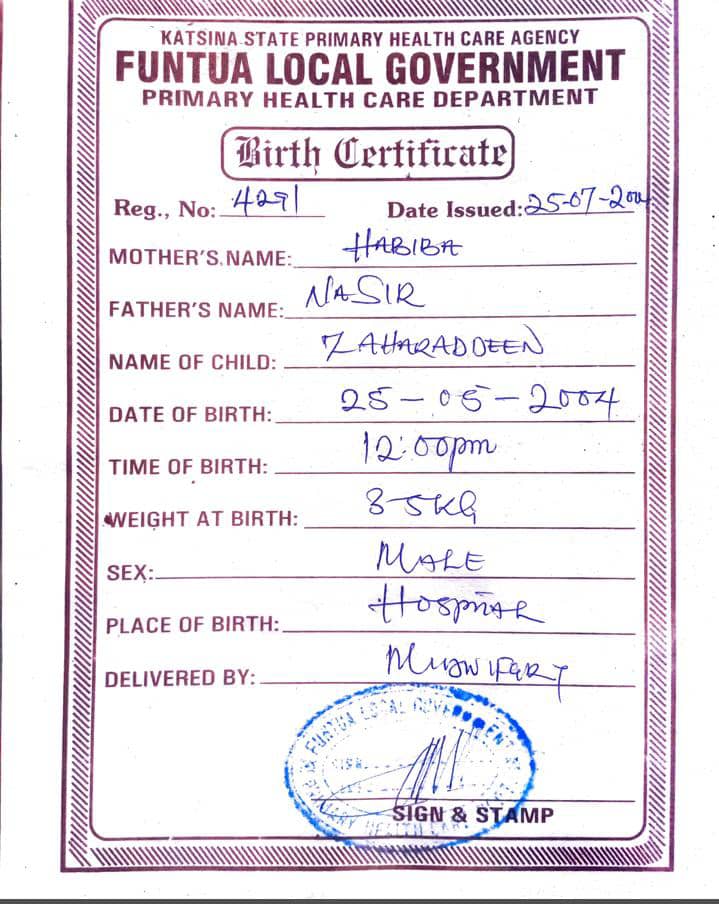 KATSINA STATE PRIMARY HEALTH CARE AGENCY
FUNTUA LOCAL GOVERNMENT
PRIMARY HEALTH CARE DEPARTMENT
Birth Certificate
Reg., No: 4291 Date Issued: 25-07-2004
MOTHER'S NAME: HABIBA
FATHER'S NAME: NASIR
NAME OF CHILD: ZAHARADDEEN
DATE OF BIRTH: 25-05-2004
TIME OF BIRTH: 12:00pm
WEIGHT AT BIRTH: 3-5KG
SEX: MALE
PLACE OF BIRTH: HOSPITAL
DELIVERED BY:
FUNTUA LOCAL GOVERNMENT
SIGN & STAMP
HEALTH CARE